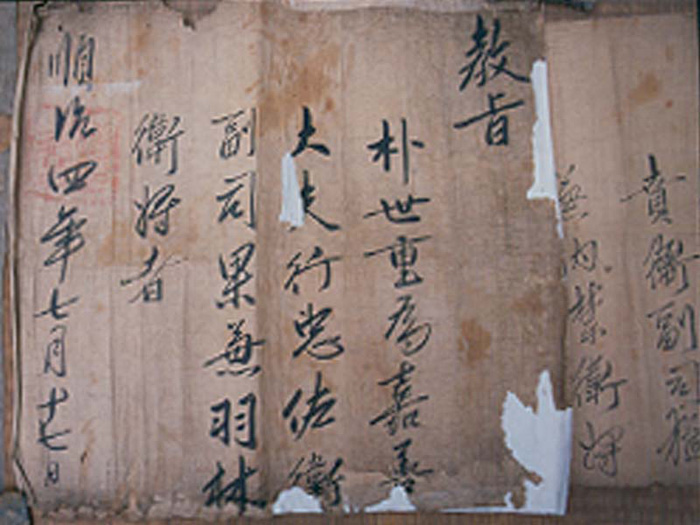 賁衛副司猛
兼內禁衛將
教旨
朴世重為嘉善
大夫行忠佐衛
副司果兼羽林
衛將者
順治四年七月十七日